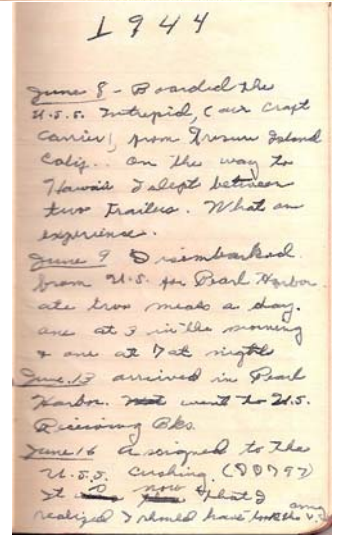 1944
June 8 - Boarded the
U.S.S. Intrepid, (air craft
carrier) from Tresure Island
Calif.. on the way to
Hawaii I slept between
two trailers. What an
experience.
June 9 Disembarked
from U.S. for Pearl Harbor
ate two meals a day.
one at 3 in the morning
& one at 7 at night
June.13 arrived in Pearl
Harbor. went to U.S.
Receiving Bks.
June 16 Assigned to the
U.S.S. Cushing. (DD797)
It is now that I
realized I should have took the army